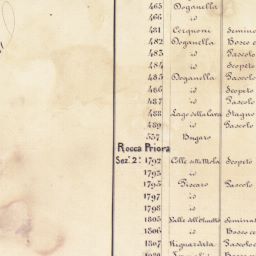 465 Doganella
466 id
481 Cerquoni Semina
482 Doganella Bosco c
483 id Pascolo
484 id Scopeto
485 Doganella Pascolo
486 id Scopeto
487 id Pascolo
488 Lago della Cava Stagno
489 id Pascolo
537 Bugaro
Rocca Priora
Sez.ª 2ª 1792 Colle della Mola Scopeto
1793 id
1795 Piscaro Pascolo
1797 id
1798 id
1805 Valle dell' Seminat
1806 id Bosco ce
1807 Riguardata Pascolo